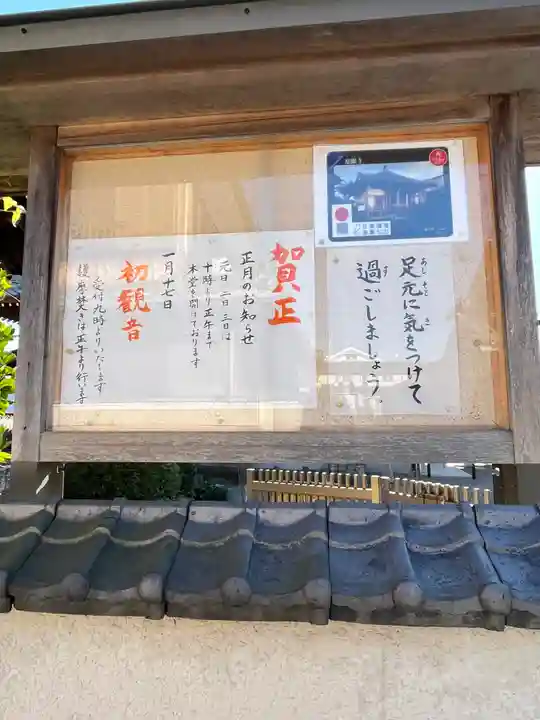 足元に気をつけて
あし もと き
過ごしましょう。
す
賀正
正月のお知らせ
元日 二日 三日は
十時より正午まで
本堂を開けております
一月十七日
初観音
受付九時よりいたします
護摩焚きは正午より行います